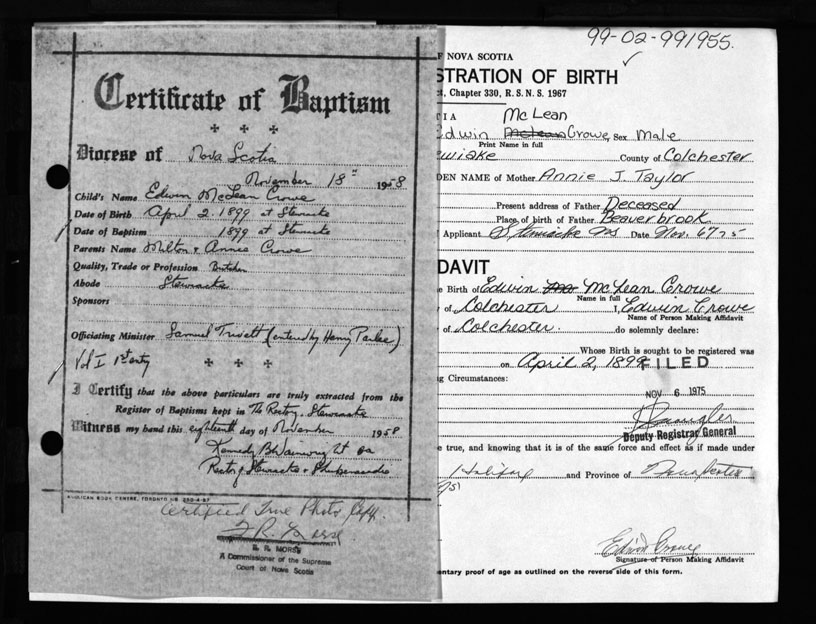 Certificate of Baptism
Diocese of Nova Scotia
November 18th 1958
Child's Name Edwin McLean Crowe
Date of Birth April 2. 1899 at Stewiacke
Date of Baptism 1899 at Stewiacke
Parents Name Milton & Annie Crowe
Quality, Trade or Profession Butcher
Abode Stewiacke
Sponsors
Officiating Minister Samuel Trivett (entered by Henry Parlee)
Vol I 1st entry
I Certify that the above particulars are truly extracted from the
Register of Baptisms kept in The Rectory, Stewiacke
Witness my hand this eighteenth day of November 1958
Rector of Stewiacke &
ANGLICAN BOOK CENTRE, TORONTO
Certified True Photo Copy.
F R Morse
A Commissioner of the Supreme
Court of Nova Scotia
99-02-991955.
F NOVA SCOTIA
STRATION OF BIRTH
Chapter 330, R.S.N.S. 1967
TIA McLean
Edwin McLean Crowe, Sex Male
Print Name in full
ewiake County of Colchester
DEN NAME of Mother Annie J. Taylor
Present address of Father Deceased
Place of birth of Father Beaverbrook
Applicant Stewiacke NS Date Nov. 6 75
DAVIT
e Birth of Edwin McLean Crowe
Name in full
of Colchester I, Edwin Crowe
Name of Person Making Affidavit
of Colchester. do solemnly declare:
Whose Birth is sought to be registered was
on April 2, 1899 FILED
g Circumstances:
NOV 6 1975
Deputy Registrar General
e true, and knowing that it is of the same force and effect as if made under
Halifax and Province of Nova Scotia
Edwin Crowe
Signature of Person Making Affidavit
entary proof of age as outlined on the reverse side of this form.